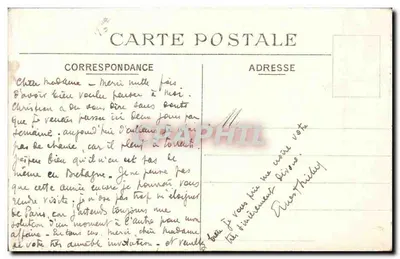 CARTE POSTALE
CORRESPONDANCE
ADRESSE
Chère Madame – Merci mille fois
d'avoir bien voulu penser à moi.
Christian a dû vous dire sans doute
que je venais passer ici deux jours par
semaine. aujourd'hui d'ailleurs
pas de chance, car il pleut à torrent
J'espère bien qu'il n'en est pas de
même en Bretagne. Je ne pense
pas que cette année encore je pourrai vous
rendre visite; je n'ose pas trop m'éloigner
de Paris, car j'attends toujours une
solution d'un moment à l'autre pour mon
affaire. En tous cas, merci, chère Madame
de votre très aimable invitation – et veuillez
je vous prie me croire votre
très sincèrement dévoué.
CPAPHIL